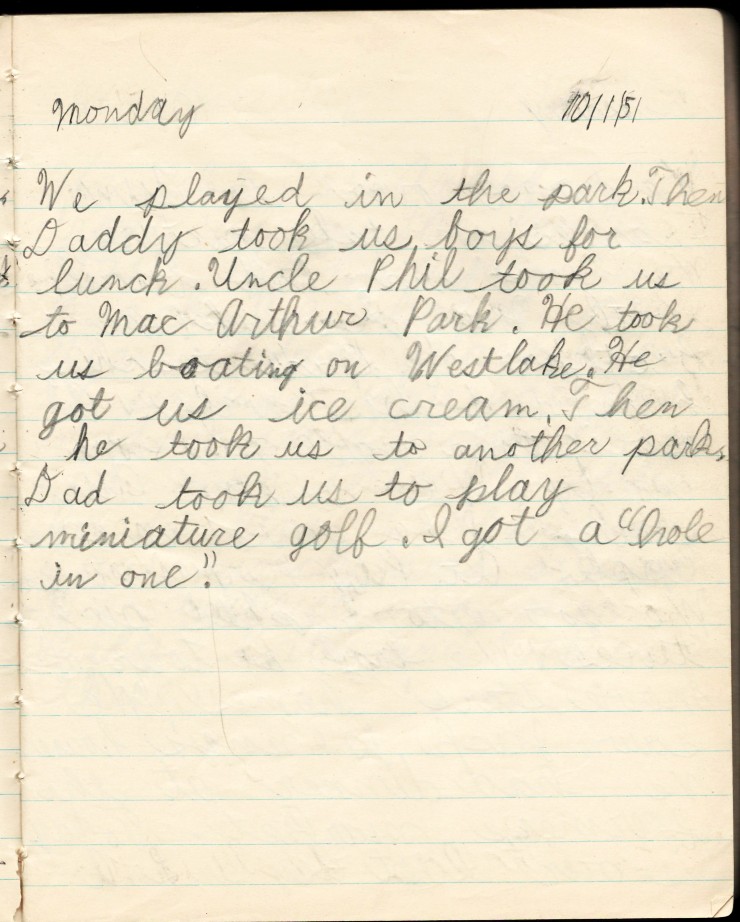 Monday 10/1/51
We played in the park. Then
Daddy took us boys for
lunch. Uncle Phil took us
to Mac Arthur Park. He took
us boating on Westlake. He
got us ice cream. Then
he took us to another park.
Dad took us to play
miniature golf. I got a "hole
in one".